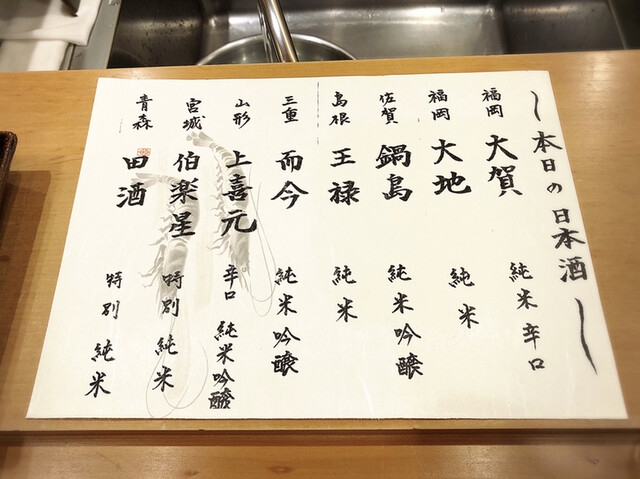 ~本日の日本酒~
福岡 大賀 純米辛口
福岡 大地 純米
佐賀 鍋島 純米吟醸
島根 王禄 純米
三重 而今 純米吟醸
山形 上喜元 辛口 純米吟醸
宮城 伯楽星 特別 純米
青森 田酒 特別 純米